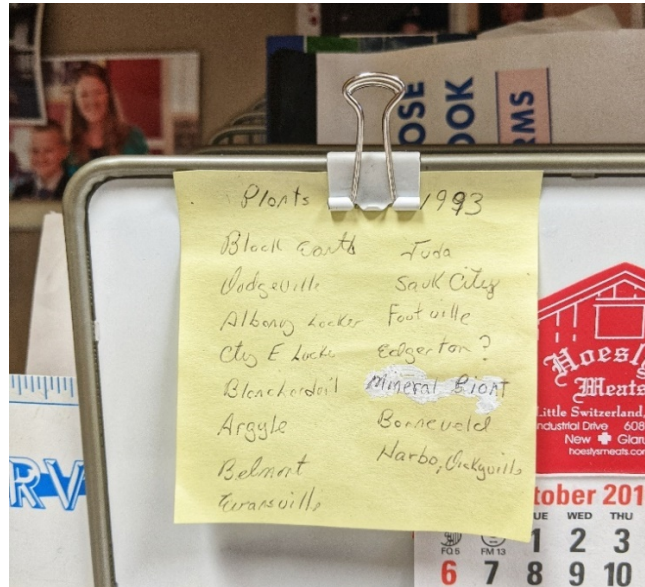 OSE
OOK
RMS
Plants 1993
Black Earth
Dodgeville
Albany Locker
Cty E Locke
Blanchardvil
Argyle
Belmont
Evansville
Juda
Sauk City
Footville
Edgerton ?
Mineral Piont
Barneveld
Harbo, Dickyville
Hoesly
Meats
Little Switzerland,
ndustrial Drive 608
New Glaru
hoeslysmeats.co
RV
tober 201
UE WED THU
FQ 5 FM 13 1 2 3
6 7 8 9 10